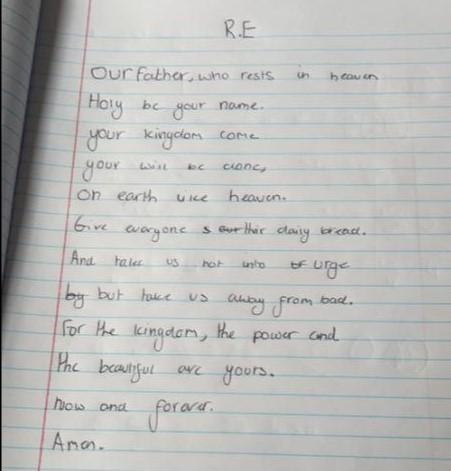 R.E
Our father, who rests in heaven
Holy be your name.
your kingdom come
your will be done,
On earth like heaven.
Give everyone s our thir daily bread.
And take us not into of urge
by but take us away from bad.
For the kingdom, the power and
the beautiful are yours.
Now and forever.
Amen.